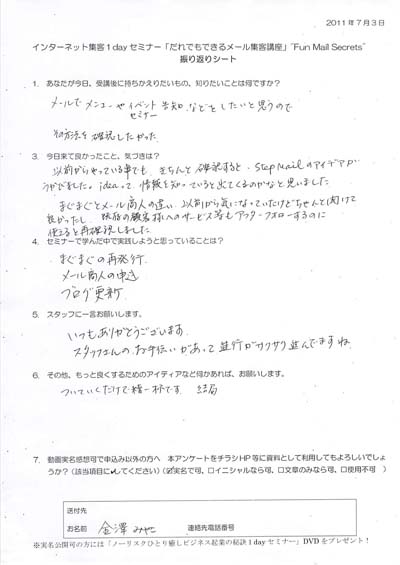 2011年7月3日
インターネット集客1dayセミナー「だれでもできるメール集客講座」"Fun Mail Secrets"
振り返りシート
1. あなたが今日、受講後に持ちかえりたいもの、知りたいことは何ですか?
メールで メニューやイベント告知などをしたいと思うので
セミナー
その方法を確認したかった。
3. 今日来て良かったこと、気づきは?
以前からやっている事でも、きちんと確認すると、Step Mailのアイデアが
うかびました。ideaって、情報を知っていると出てくるのかなと思いました
まぐまぐとメール商人の違い、以前から気になっていたけどちゃんと聞けて
良かったし、既存の顧客様へのサービス等もアフターフォローするのに
使えると再確認しました
4. セミナーで学んだ中で実践しようと思っていることは?
まぐまぐの再発行.
メール商人の申込
ブログ更新
5. スタッフに一言お願いします。
いつもありがとうございます.
スタッフさんのお手伝いがあって進行がサクサク進んでますね
6. その他、もっと良くするためのアイディアなど何かあれば、お願いします。
ついていくだけで精一杯です 結局
7. 動画実名感想可で申込み以外の方へ 本アンケートをチラシHP等に資料として利用してもよろしいでしょ
うか?(該当項目に✓してください)(☑実名で可、□イニシャルなら可、□文章のみなら可、□使用不可 )
送付先
お名前 金澤 連絡先電話番号
※実名公開可の方には「ノーリスクひとり癒しビジネス起業の秘訣1dayセミナー」DVDをプレゼント!